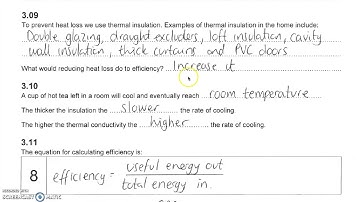 3.09
To prevent heat loss we use thermal insulation. Examples of thermal insulation in the home include:
Double glazing, draught excluders, loft insulation, cavity
wall insulation, thick curtains and PVC doors
What would reducing heat loss do to efficiency? Increase it
3.10
A cup of hot tea left in a room will cool and eventually reach ... room temperature
The thicker the insulation the ... slower ... the rate of cooling.
The higher the thermal conductivity the ... higher ... the rate of cooling.
3.11
The equation for calculating efficiency is:
8 efficiency = useful energy out
total energy in.
SCREENCAST-O-MATIC